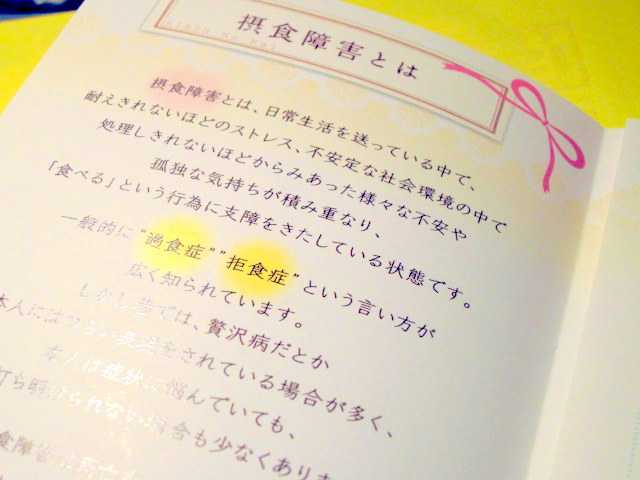 摂食障害とは
Ribon No Kai
摂食障害とは、日常生活を送っている中で、
耐えきれないほどのストレス、不安定な社会環境の中で
処理しきれないほどからみあった様々な不安や
孤独な気持ちが積み重なり、
「食べる」という行為に支障をきたしている状態です。
一般的に“過食症”“拒食症”という言い方が
広く知られています。
しかし巷では、贅沢病だとか
本人にはつらい表現をされている場合が多く、
本人は症状に悩んでいても、
打ち明けられない場合も少なくありま
食障害は